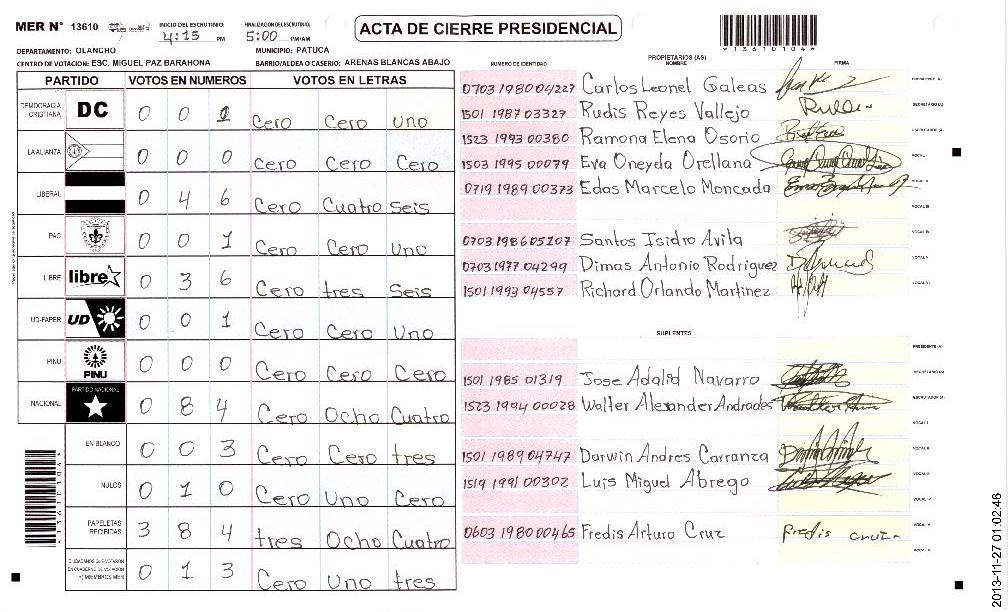 MER N° 13610 INICIO DEL ESCRUTINIO: 4:15 PM FINALIZACION DEL ESCRUTINIO: 5:00 PM/AM
ACTA DE CIERRE PRESIDENCIAL
*136101044*
DEPARTAMENTO: OLANCHO MUNICIPIO: PATUCA
CENTRO DE VOTACION: ESC. MIGUEL PAZ BARAHONA BARRIO/ALDEA O CASERIO: ARENAS BLANCAS ABAJO
PARTIDO VOTOS EN NUMEROS VOTOS EN LETRAS
DEMOCRACIA CRISTIANA DC 0 0 1 Cero Cero uno
LA ALIANZA 0 0 0 Cero Cero Cero
LIBERAL 0 4 6 Cero Cuatro Seis
PAC 0 0 1 Cero Cero Uno
LIBRE libre 0 3 6 Cero tres Seis
UD-FAPER UD 0 0 1 Cero Cero Uno
PINU PINU 0 0 0 Cero Cero Cero
NACIONAL PARTIDO NACIONAL 0 8 4 Cero Ocho Cuatro
EN BLANCO 0 0 3 Cero Cero tres
NULOS 0 1 0 Cero Uno Cero
PAPELETAS RECIBIDAS 3 8 4 tres Ocho Cuatro
CIUDADANOS QUE VOTARON EN CUADERNO DE VOTACION (+) MIEMBROS MER 0 1 3 Cero Uno tres
PROPIETARIOS (AS)
NUMERO DE IDENTIDAD NOMBRE FIRMA
0703 1980 04227 Carlos Leonel Galeas PRESIDENTE (A)
1501 1987 03327 Rudis Reyes Vallejo SECRETARIO (A)
1523 1993 00380 Ramona Elena Osorio ESCRUTADOR (A)
1503 1995 00079 Eva Oneyda Orellana VOCAL I
0719 1989 00373 Edas Marcelo Moncada VOCAL II
VOCAL III
0703 1986 05107 Santos Isidro Avila VOCAL IV
0703 1977 04299 Dimas Antonio Rodriguez VOCAL V
1501 1993 04557 Richard Orlando Martinez VOCAL VI
SUPLENTES
PRESIDENTE (A)
1501 1985 01319 Jose Adalid Navarro SECRETARIO (A)
1523 1994 00028 Walter Alexander Andrades ESCRUTADOR (A)
VOCAL I
1501 1989 04747 Darwin Andres Carranza VOCAL II
1519 1991 00302 Luis Miguel Abrego VOCAL III
VOCAL IV
0603 1980 00465 Fredis Arturo Cruz Fredis Cruz VOCAL V
VOCAL VI
2013-11-27 01:02:46